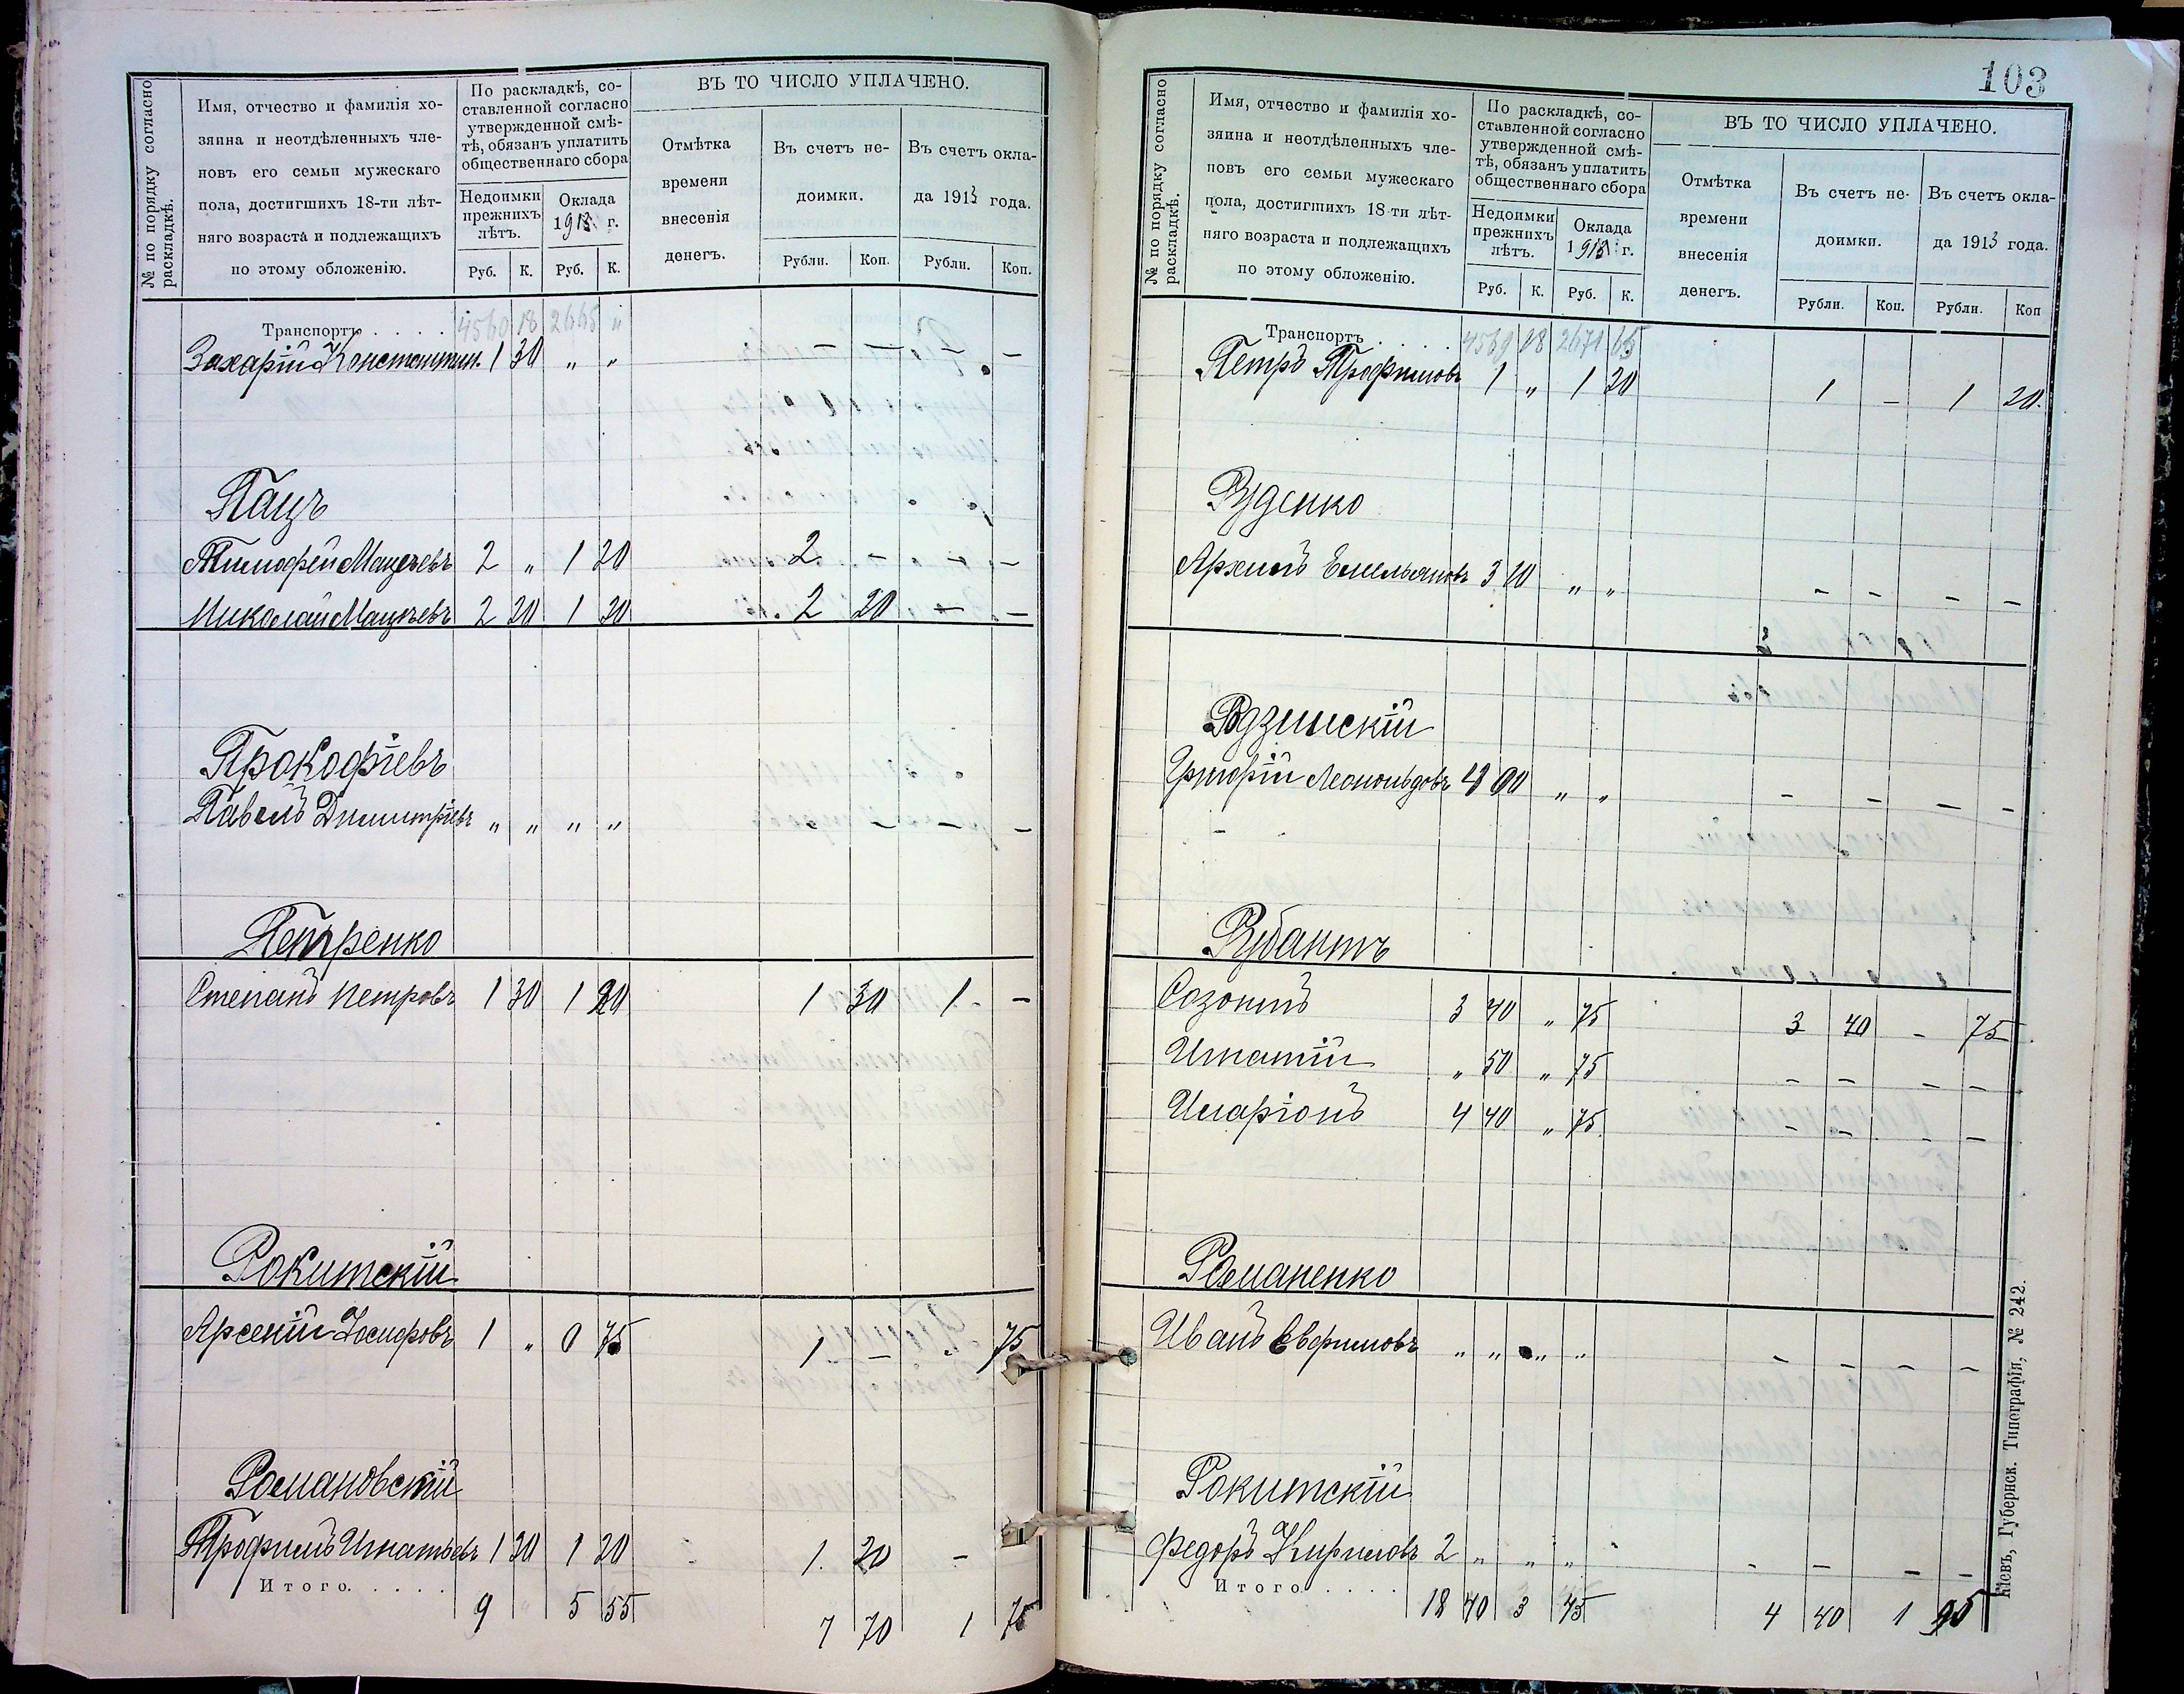 № по порядку согласно раскладкѣ.
Имя, отчество и фамилія хозяина и неотдѣленныхъ членовъ его семьи мужескаго пола, достигшихъ 18-ти лѣтняго возраста и подлежащихъ по этому обложенію.
По раскладкѣ, составленной согласно утвержденной смѣтѣ, обязанъ уплатить общественнаго сбора
Недоимки прежнихъ лѣтъ.
Оклада 1913 г.
Руб. К. Руб. К.
ВЪ ТО ЧИСЛО УПЛАЧЕНО.
Отмѣтка времени внесенія денегъ.
Въ счетъ недоимки.
Въ счетъ оклада 1913 года.
Рубли. Коп. Рубли. Коп.
Транспортъ . . . . 4560 18 2665 "
Захарій Константин. 1 30 " " – – – –
Пацъ
Тимофей Мацѣевъ 2 " 1 20 2 – – –
Николай Мацѣевъ 2 20 1 20 2 20 – –
Прокофіевъ
Павелъ Димитріевъ " " " " – – –
Петренко
Степанъ Петровъ 1 30 1 20 1 30 1 –
Рокитскій
Арсеній Іосифовъ 1 " 0 75 1 – " 75
Романовскій
Трофимъ Игнатьевъ 1 20 1 20 1 20 –
Итого. . . . . 9 " 5 55 7 70 1 75
103
№ по порядку согласно раскладкѣ.
Имя, отчество и фамилія хозяина и неотдѣленныхъ членовъ его семьи мужескаго пола, достигшихъ 18-ти лѣтняго возраста и подлежащихъ по этому обложенію.
По раскладкѣ, составленной согласно утвержденной смѣтѣ, обязанъ уплатить общественнаго сбора
Недоимки прежнихъ лѣтъ.
Оклада 1913 г.
Руб. К. Руб. К.
ВЪ ТО ЧИСЛО УПЛАЧЕНО.
Отмѣтка времени внесенія денегъ.
Въ счетъ недоимки.
Въ счетъ оклада 1913 года.
Рубли. Коп. Рубли. Коп
Транспортъ . . . . . 4569 18 2671 65
Петръ Трофимовъ 1 " 1 20 1 – 1 20.
Руденко
Архипъ Емельяновъ 3 10 " " – – – –
Рудзинскій
Григорій Леопольдовъ 4 00 " " – – – –
Рубанъ
Созонтъ 3 40 " 75 3 40 – 75
Игнатій " 50 " 75 – – – –
Иларіонъ 4 40 " 75 – – – –
Романенко
Иванъ Евфимовъ " " " " – – – –
Рокитскій
Федоръ Кириловъ 2 " " " – – – –
Итого . . . . 18 40 3 45 4 40 1 95
Кіевъ, Губернск. Типографія, № 242.